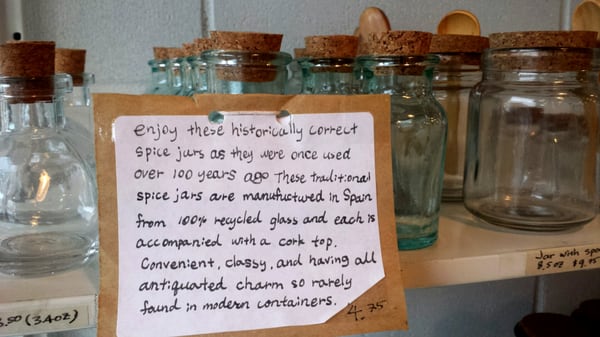 enjoy these historically correct
spice jars as they were once used
over 100 years ago These traditional
spice jars are manufactured in Spain
from 100% recycled glass and each is
accompanied with a cork top.
Convenient, classy, and having all
antiquated charm so rarely
found in modern containers. 4.75
.50 (3.4oz)
Jar with
8.5oz $9.75